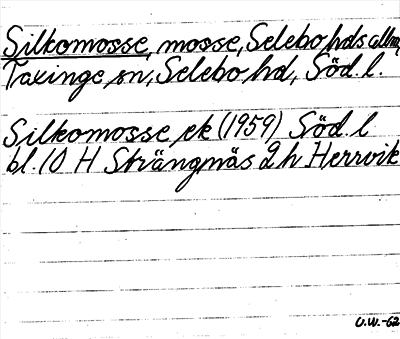 Silkomosse, mosse, Selebo hds allm,
Taxinge sn, Selebo hd, Söd. l.
Silkomosse ek (1959) Söd. l
bl. 10 H Strängnäs 2 h Herrvik
U.W.-62